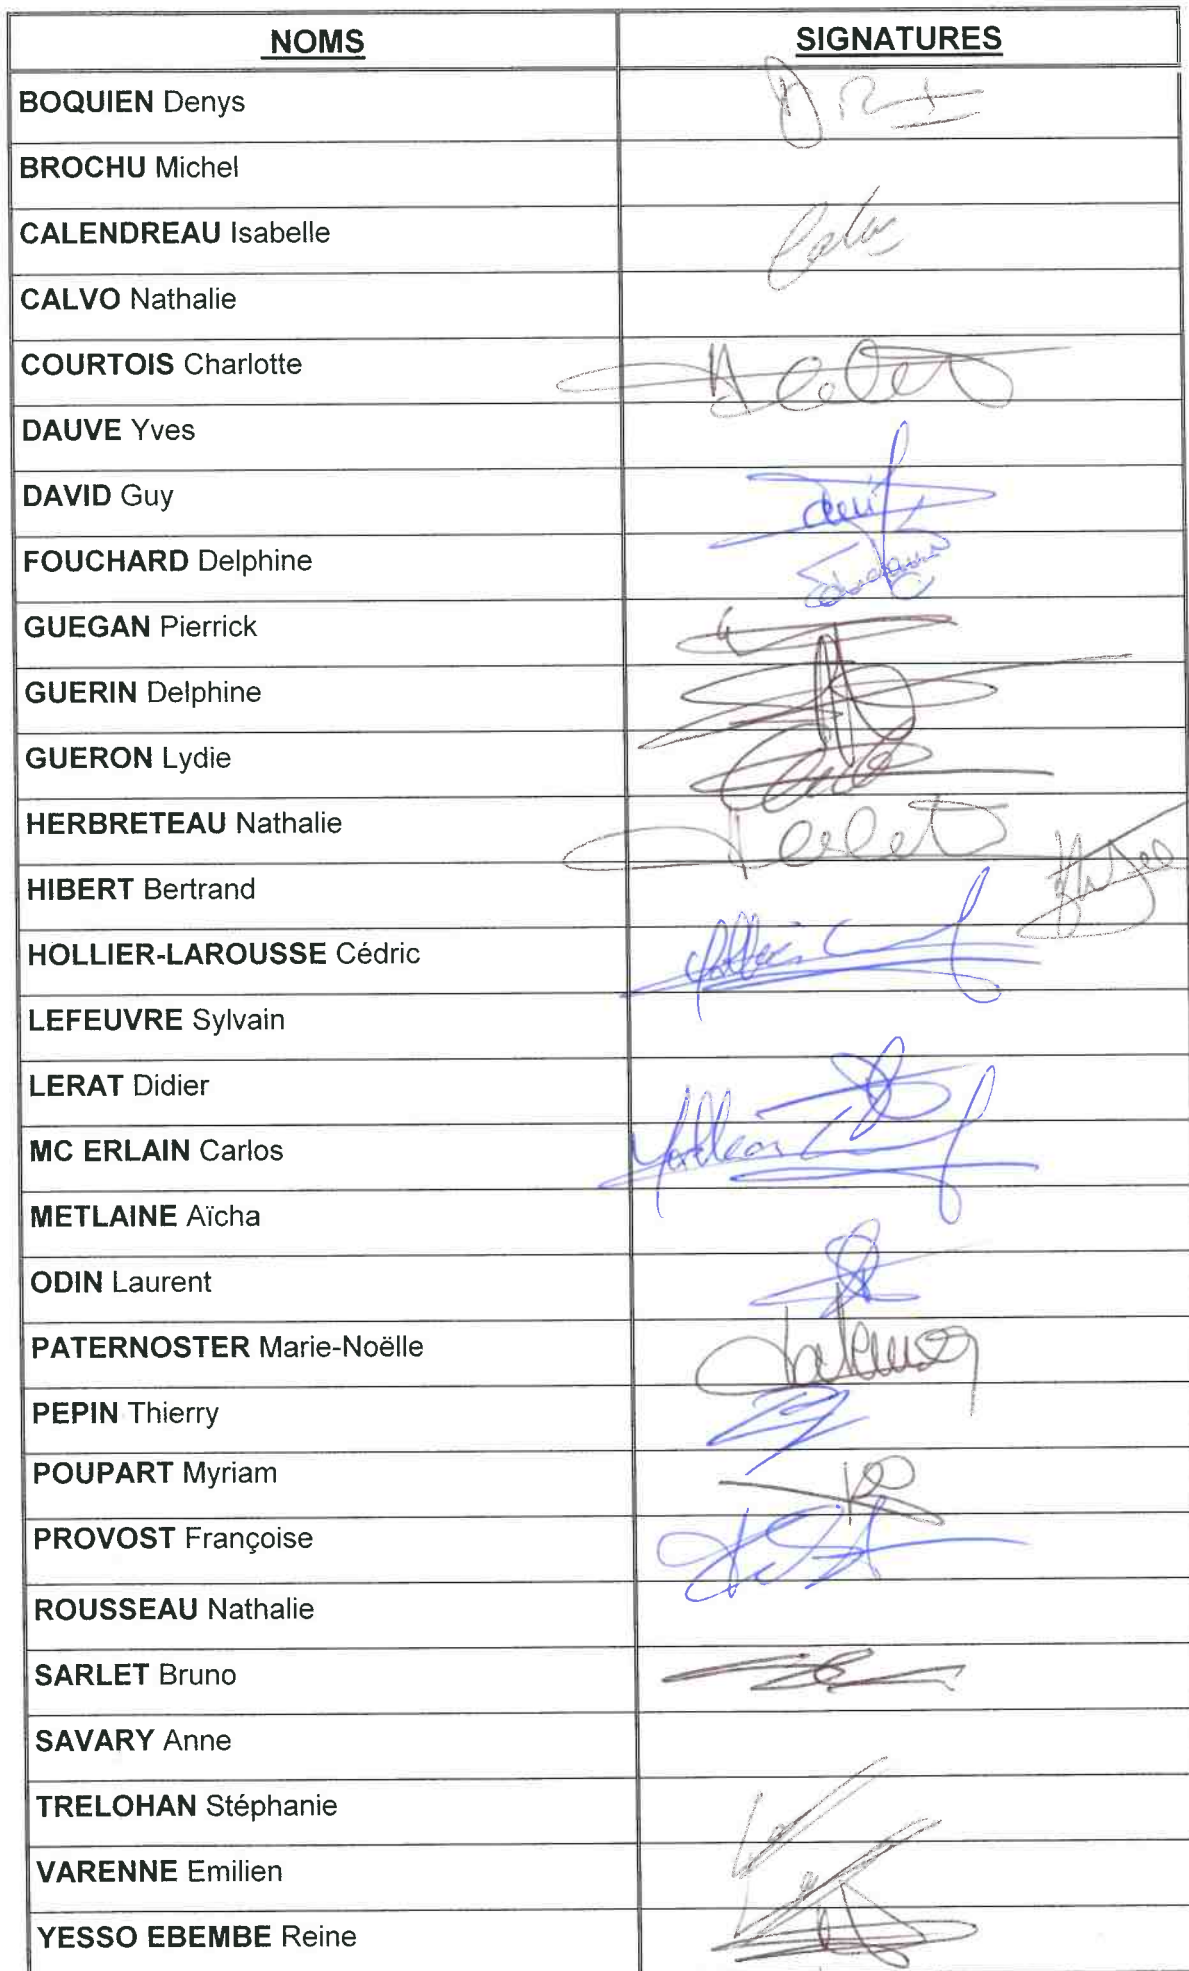 NOMS SIGNATURES
BOQUIEN Denys
BROCHU Michel
CALENDREAU Isabelle
CALVO Nathalie
COURTOIS Charlotte
DAUVE Yves
DAVID Guy
FOUCHARD Delphine
GUEGAN Pierrick
GUERIN Delphine
GUERON Lydie
HERBRETEAU Nathalie
HIBERT Bertrand
HOLLIER-LAROUSSE Cédric
LEFEUVRE Sylvain
LERAT Didier
MC ERLAIN Carlos
METLAINE Aïcha
ODIN Laurent
PATERNOSTER Marie-Noëlle
PEPIN Thierry
POUPART Myriam
PROVOST Françoise
ROUSSEAU Nathalie
SARLET Bruno
SAVARY Anne
TRELOHAN Stéphanie
VARENNE Emilien
YESSO EBEMBE Reine